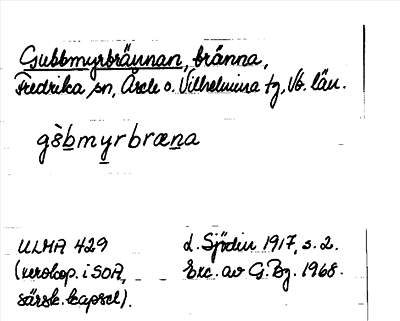 Gubbmyrbrännan, bränna,
Fredrika sn, Åsele o. Vilhelmina tg, Vb. län.
gs̀bmyrbræna
ULMA 429 d. Sjödin 1917, s. 2.
(xerokop. i SOA, Exc. av G. Bg. 1968.
särsk. kapsel).